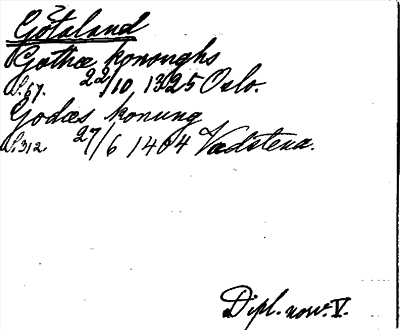 Götaland
Gøthæ konoughs
s. 67. 22/10, 1325 Oslo.
Godæs konung
s. 312. 27/6 1404 Vadstena.
Dipl. norv. V.